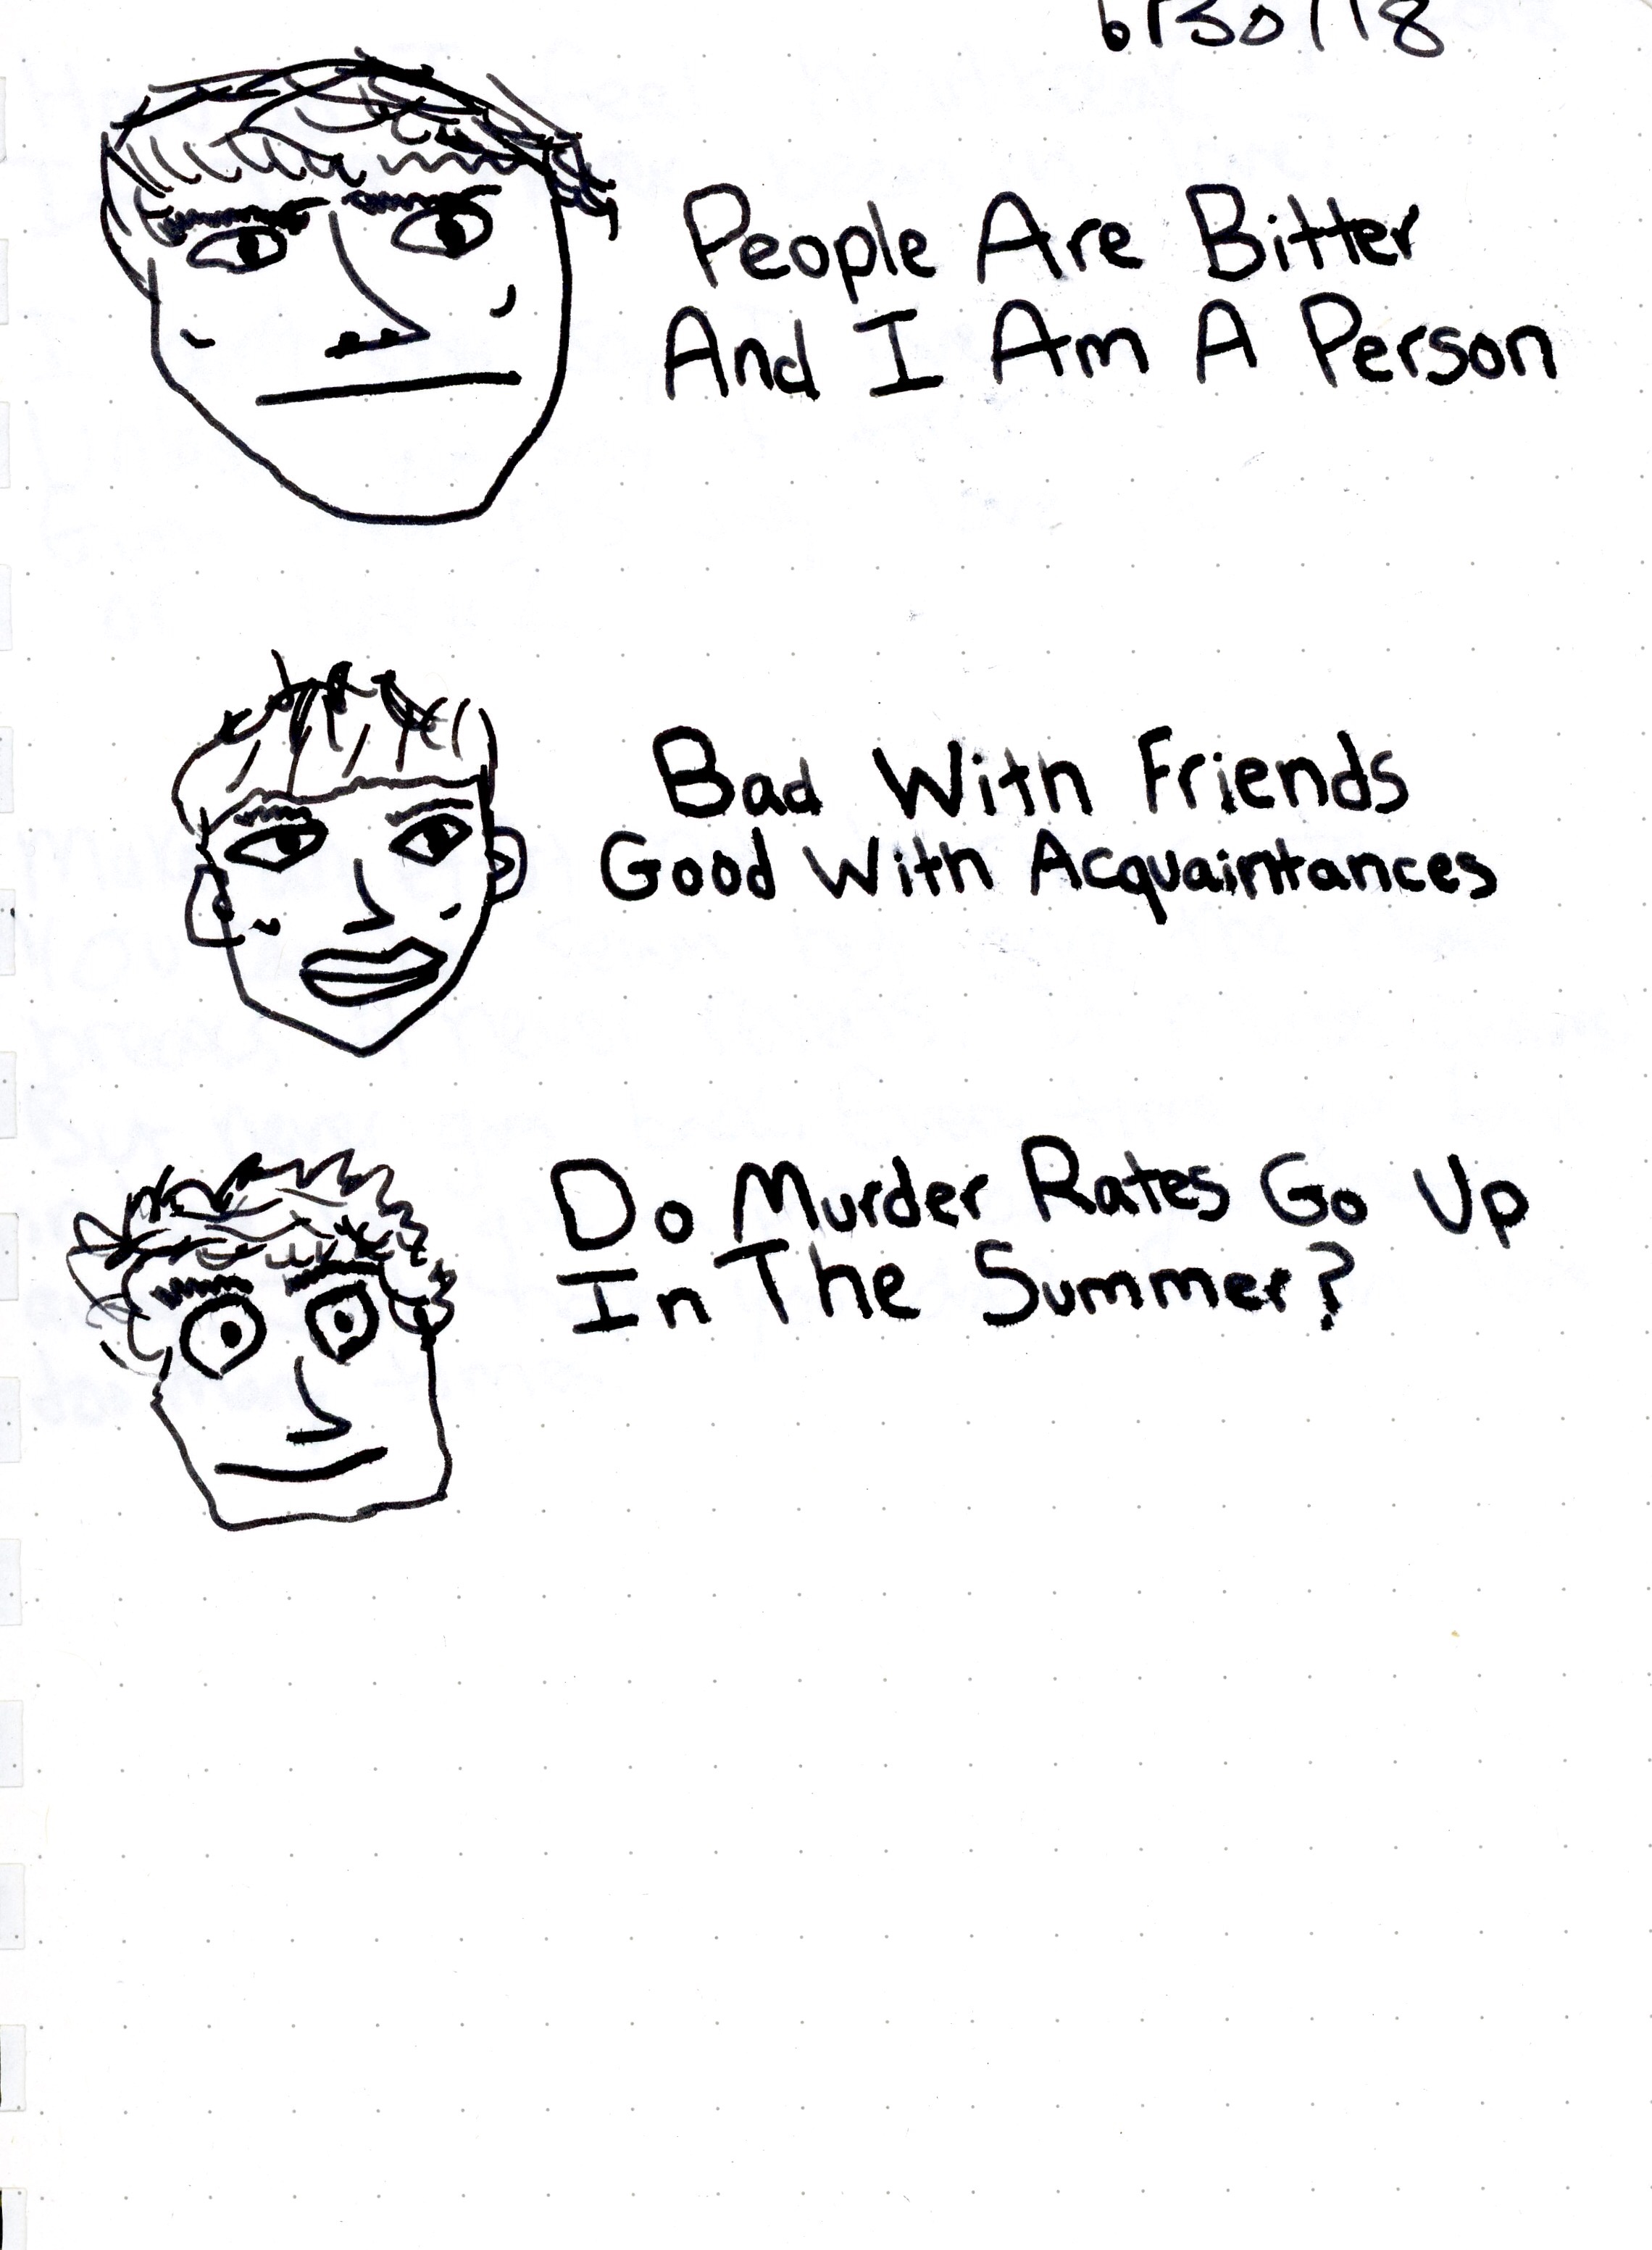 6/30/18
People Are Bitter
And I Am A Person
Bad With Friends
Good With Acquaintances
Do Murder Rates Go Up
In The Summer?